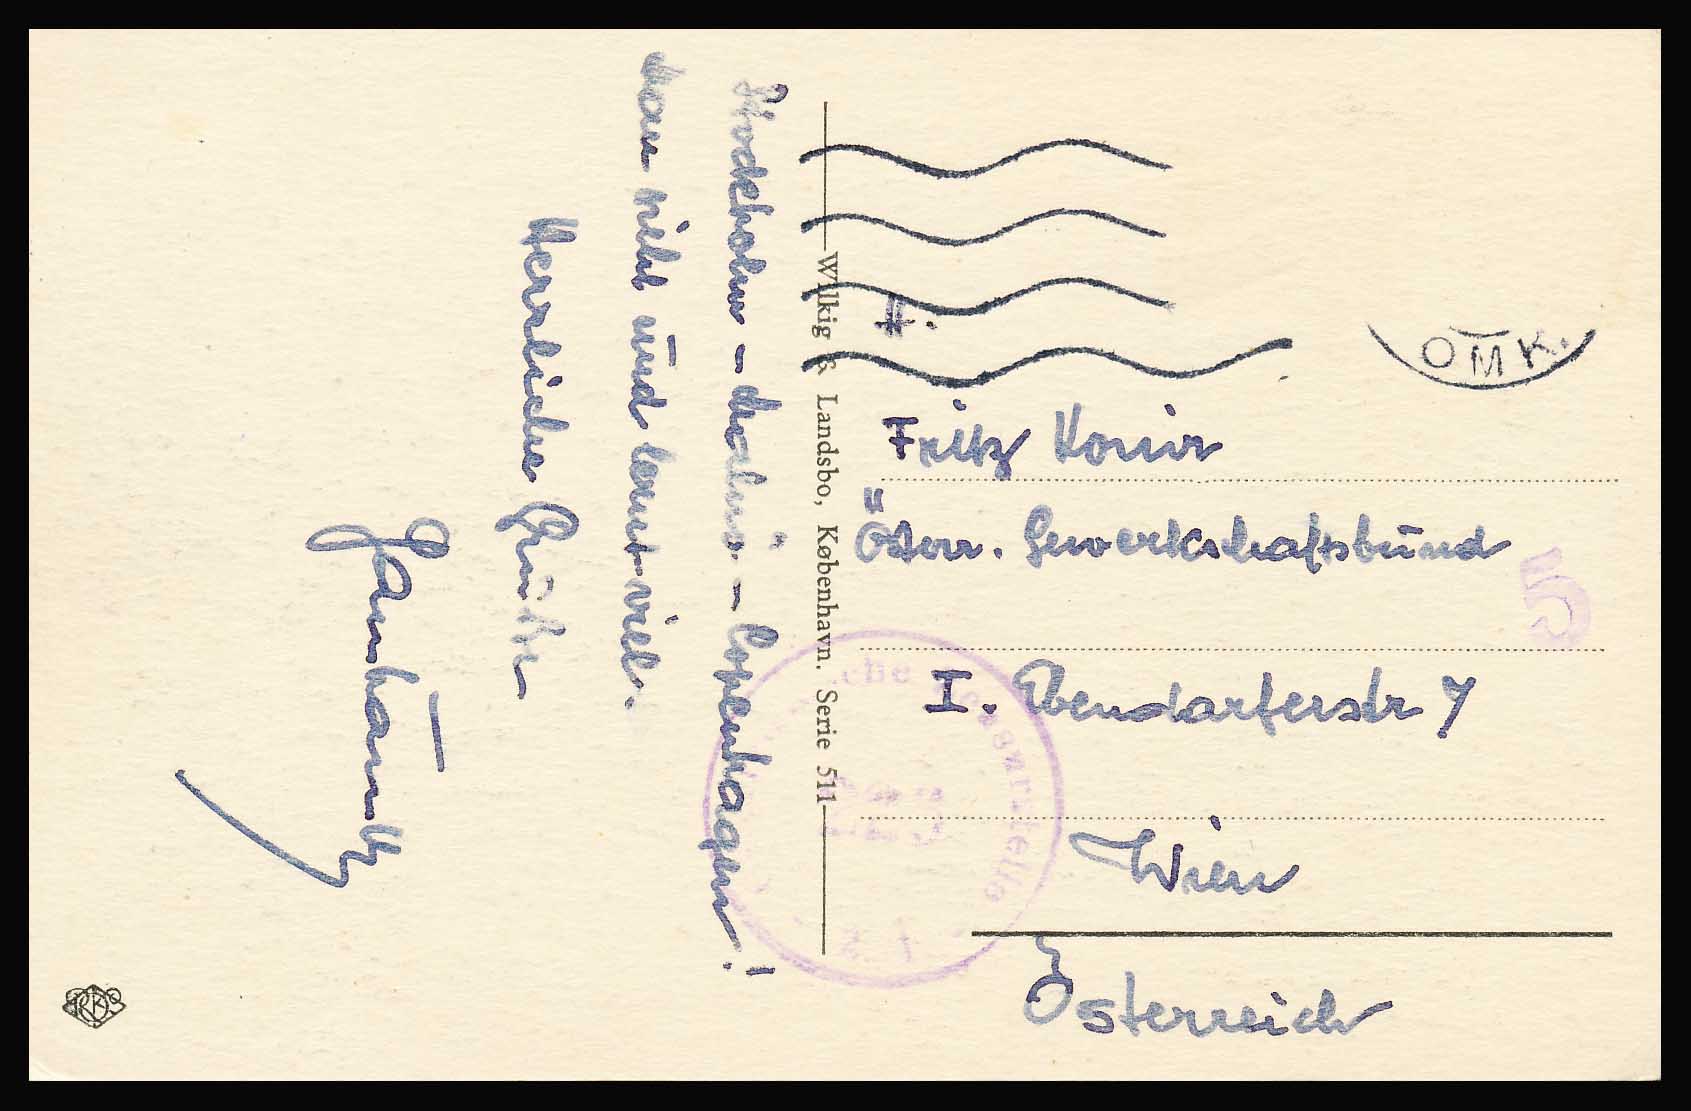 Stockholm - Malmö - Copenhagen!
man sieht und lernt viel.
Herzliche Grüße
Wilkig & Landsbo, København. Serie 511
OMK.
H.
Fritz Konir
Österr. Gewerkschaftsbund
I. Ebendorferstr 7
Wien
Österreich
5